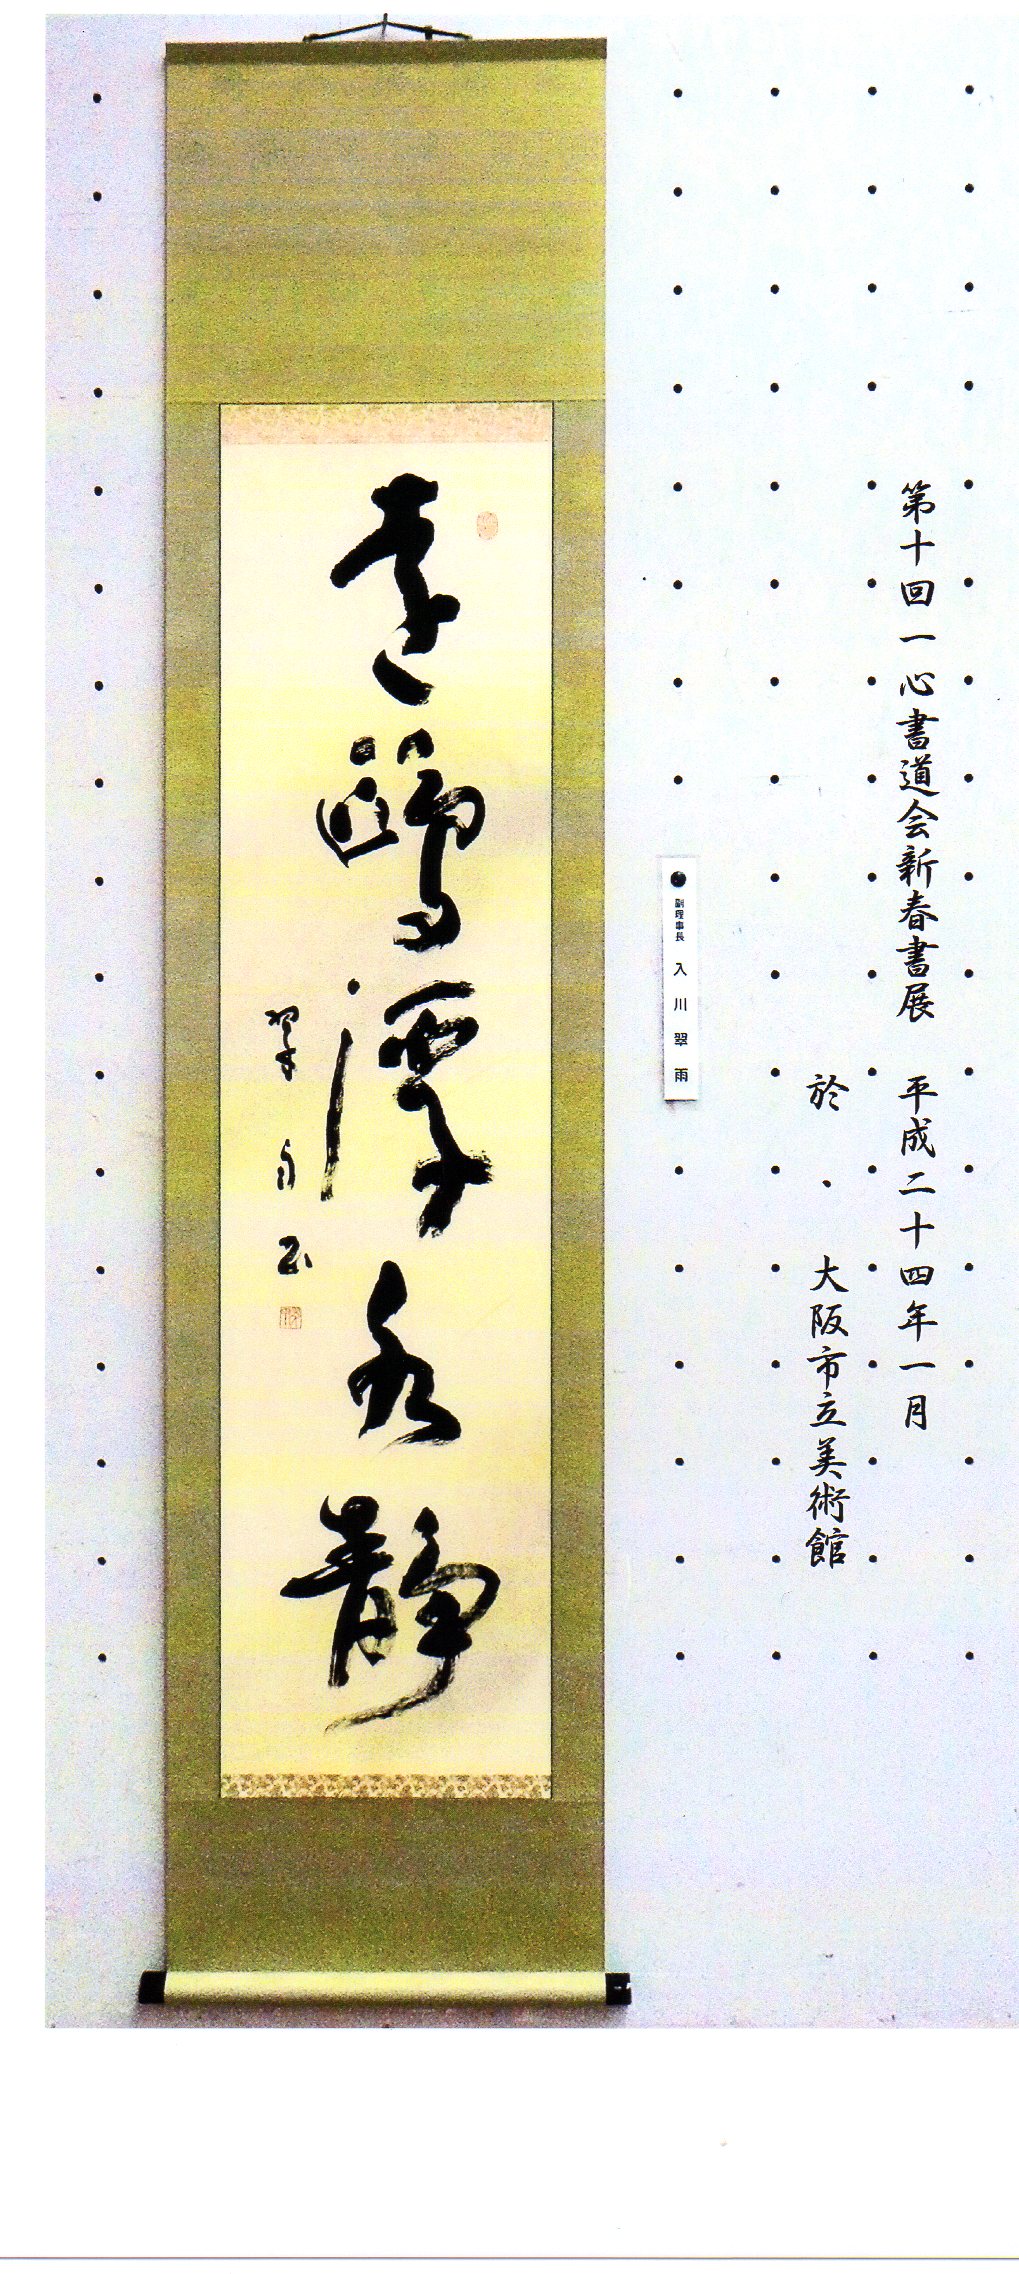 第十回一心書道会新春書展 平成二十四年一月
於、大阪市立美術館
副理事長 入川翠雨
潭水静
翠雨